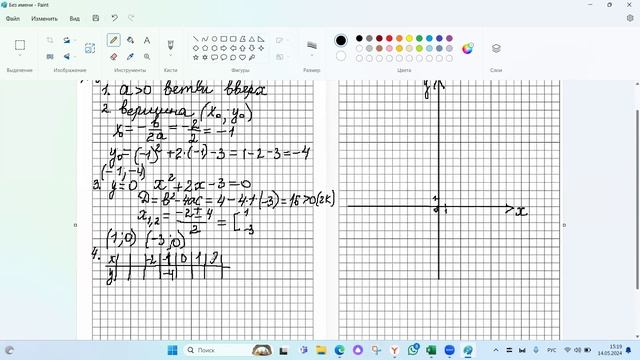 Без имени - Paint
Файл Изменить Вид
Выделение Изображение Инструменты Кисти Фигуры Размер Цвета Слои
1. a>0 ветви вверх
2. вершина (x₀; y₀)
x₀ = -b/2a = -2/2 = -1
y₀ = (-1)² + 2·(-1) - 3 = 1 - 2 - 3 = -4
(-1; -4)
3. y = 0 x² + 2x - 3 = 0
D = b² - 4ac = 4 - 4·1·(-3) = 16 > 0 (2к)
x₁,₂ = (-2 ± 4)/2 = [1
-3
(1;0) (-3;0)
4. x | | | -2 | -1 | 0 | 1 |
y | | | | -4 | | |
y
1
0 1
x
Поиск
РУС
15:19
14.05.2024